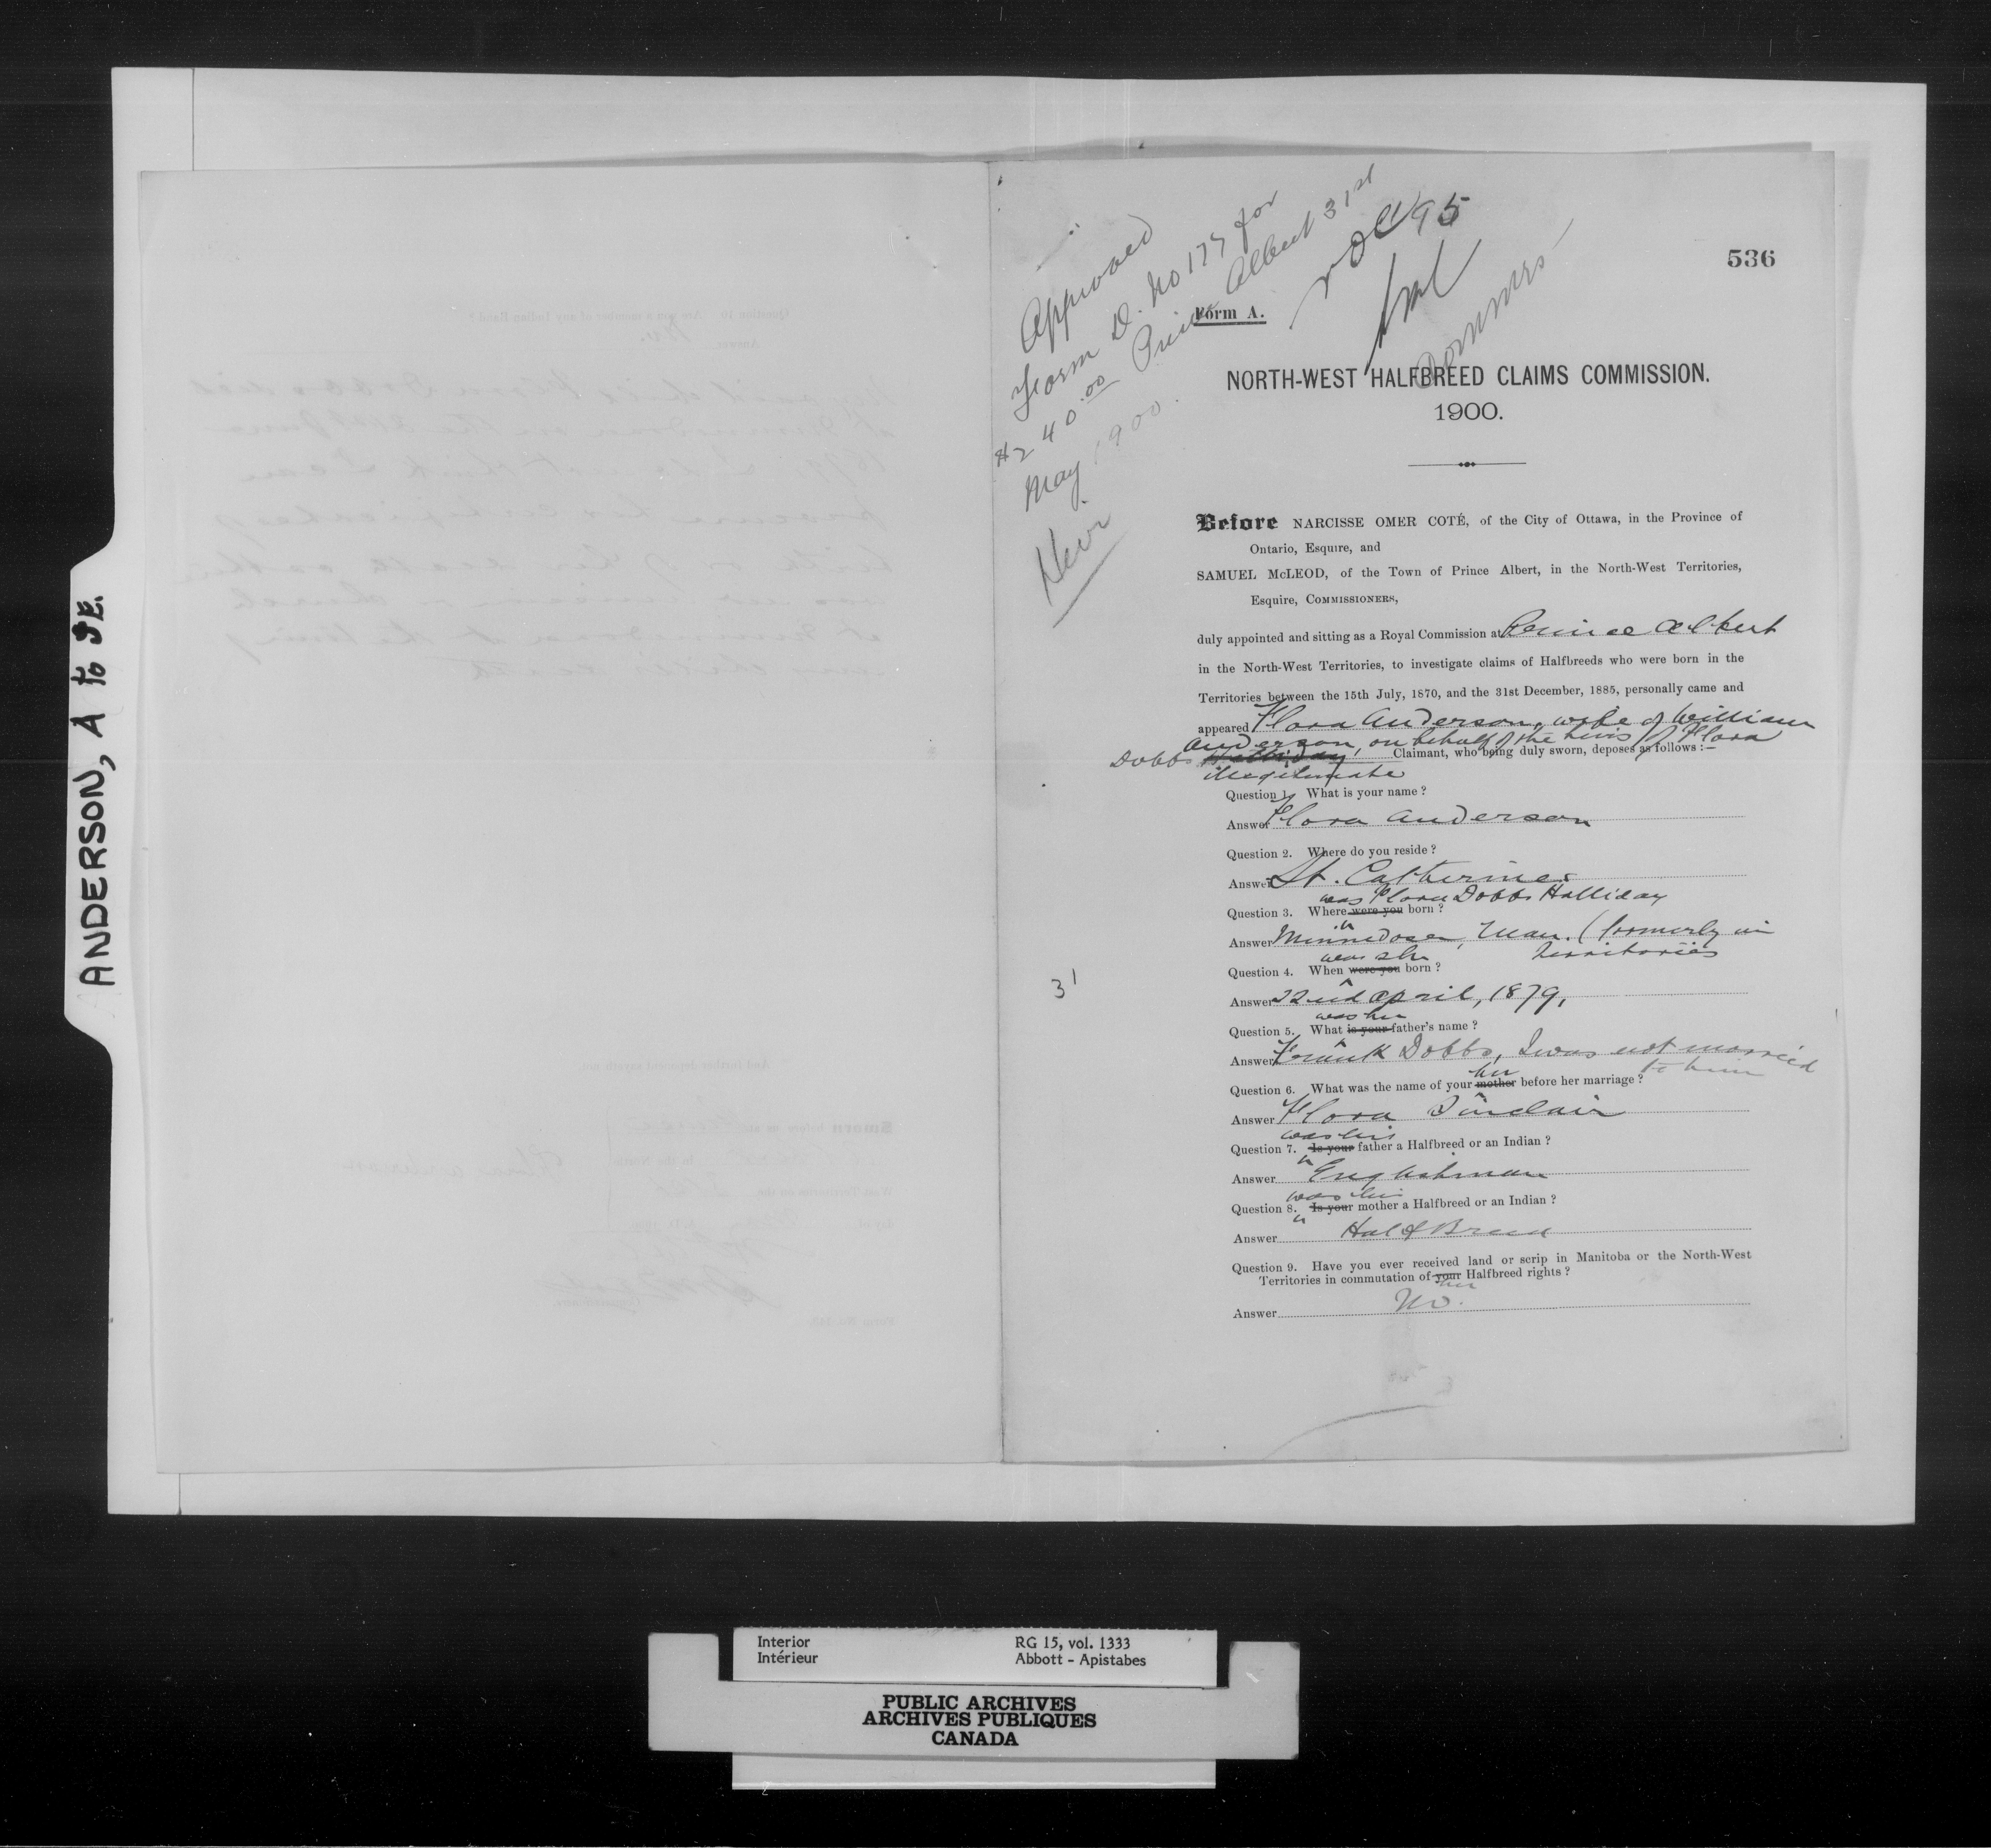 ANDERSON, A to IE.
536
Approved
Form D. No 177 for
$240.00 Prince Albert 31st
May 1900.
Heir
Form A.
NORTH-WEST HALFBREED CLAIMS COMMISSION.
1900.
Before NARCISSE OMER COTÉ, of the City of Ottawa, in the Province of
Ontario, Esquire, and
SAMUEL McLEOD, of the Town of Prince Albert, in the North-West Territories,
Esquire, COMMISSIONERS,
duly appointed and sitting as a Royal Commission at Prince Albert
in the North-West Territories, to investigate claims of Halfbreeds who were born in the
Territories between the 15th July, 1870, and the 31st December, 1885, personally came and
appeared Flora Anderson, wife of William
Anderson, on behalf of the heirs of Flora
Dobbs Halliday Claimant, who being duly sworn, deposes as follows:—
illegitimate
Question 1. What is your name?
Answer Flora Anderson
Question 2. Where do you reside?
Answer St. Catherines
was Flora Dobbs Halliday
Question 3. Where were you born?
Answer Minnedosa, Man. (formerly in
Territories
was she
Question 4. When were you born?
31
Answer 22nd April, 1879,
was her
Question 5. What is your father's name?
Answer Frank Dobbs, I was not married
to him
her
Question 6. What was the name of your mother before her marriage?
Answer Flora Sinclair
was her
Question 7. Is your father a Halfbreed or an Indian?
Answer Englishman
was her
Question 8. Is your mother a Halfbreed or an Indian?
Answer Half Breed
Question 9. Have you ever received land or scrip in Manitoba or the North-West
Territories in commutation of your Halfbreed rights?
her
Answer No.
Interior RG 15, vol. 1333
Intérieur Abbott - Apistabes
PUBLIC ARCHIVES
ARCHIVES PUBLIQUES
CANADA